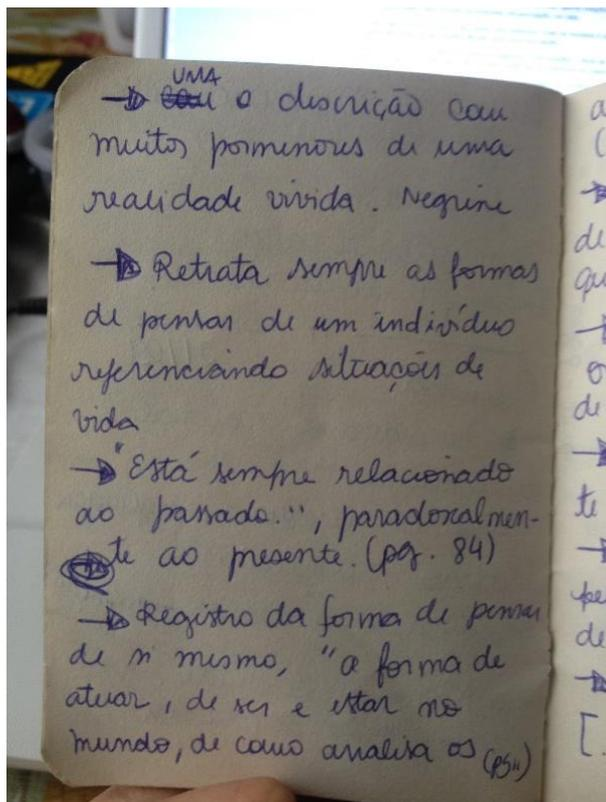 → UMA o descrição com
muitos pormenores de uma
realidade vivida. Negrine
→ Retrata sempre as formas
de pensar de um indivíduo
referenciando situações de
vida
→ "Está sempre relacionado
ao passado.", paradoxalmen-
te ao presente. (pg. 84)
→ Registro da forma de pensar
de si mesmo, "a forma de
atuar, de ser e estar no
mundo, de como analisa os
a
(
→
de
→
o
de
→
te
→
de
→
[